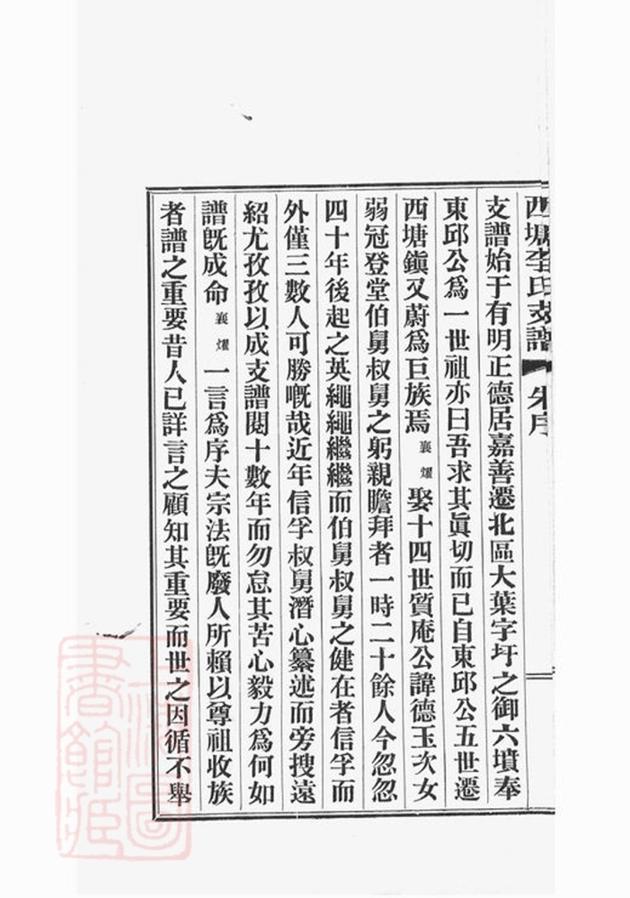 西塘李氏支譜 朱序
支譜始于有明正德居嘉善遷北區大葉字圩之御六墳奉
東邱公爲一世祖亦曰吾求其眞切而已自東邱公五世遷
西塘鎭又蔚爲巨族焉襄燿娶十四世質庵公諱德玉次女
弱冠登堂伯舅叔舅之躬親瞻拜者一時二十餘人今忽忽
四十年後起之英繩繩繼繼而伯舅叔舅之健在者信孚而
外僅三數人可勝嘅哉近年信孚叔舅潛心纂述而旁搜遠
紹尤孜孜以成支譜閱十數年而勿怠其苦心毅力爲何如
譜旣成命襄燿一言爲序夫宗法旣廢人所賴以尊祖收族
者譜之重要昔人已詳言之顧知其重要而世之因循不舉